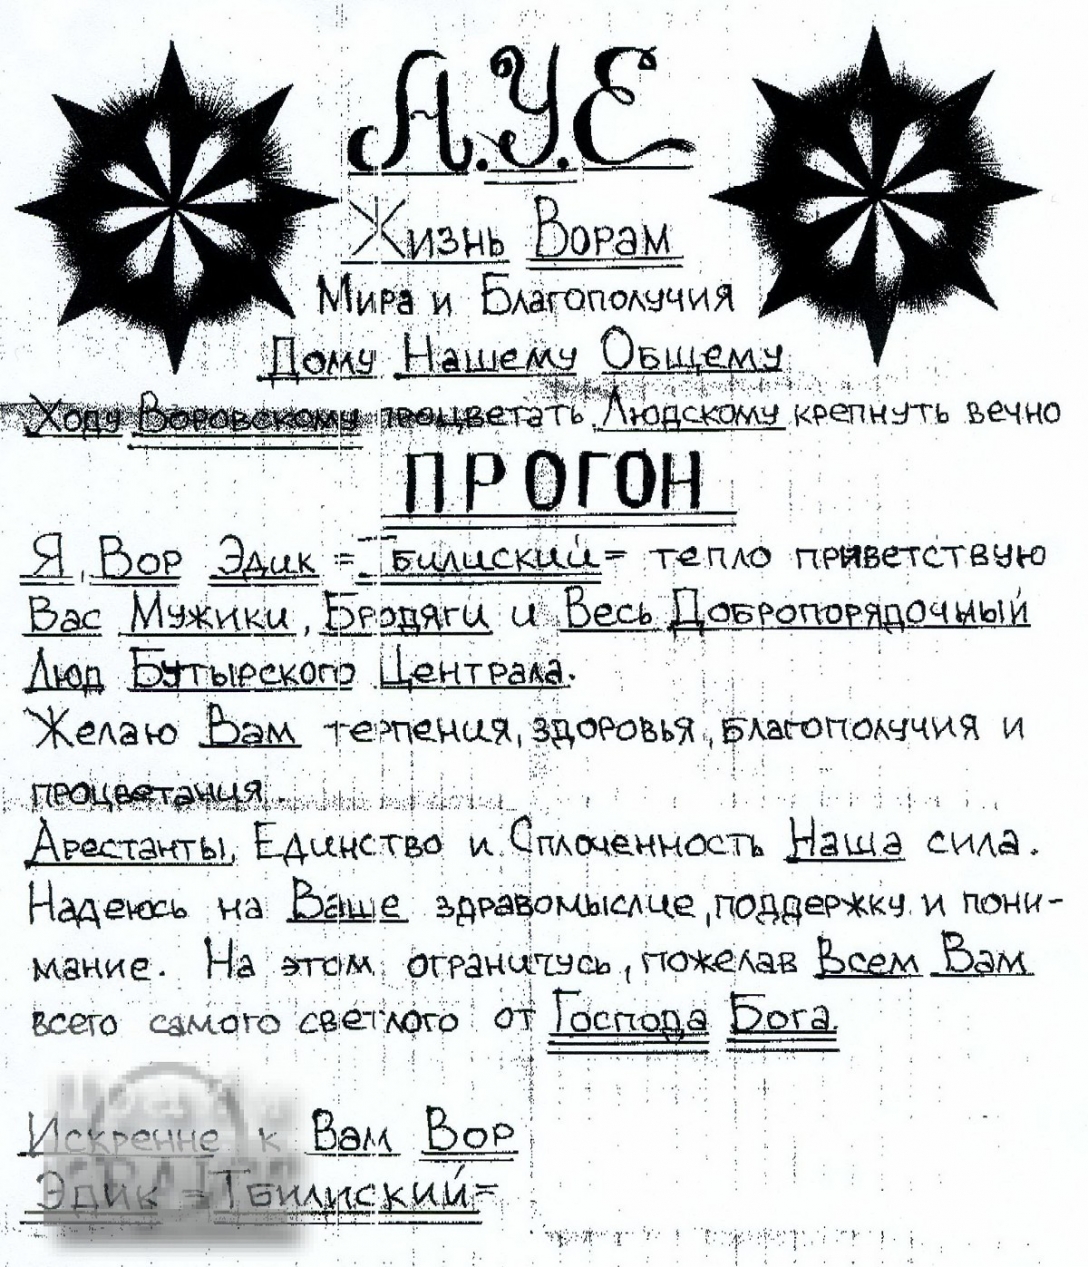 А.У.Е
Жизнь Ворам
Мира и Благополучия
Дому Нашему Общему
Ходу Воровскому процветать Людскому крепнуть вечно
ПРОГОН
Я, Вор Эдик =Тбилиский= тепло приветствую
Вас Мужики, Бродяги и Весь Добропорядочный
Люд Бутырского Централа.
Желаю Вам терпения, здоровья, благополучия и
процветания.
Арестанты, Единство и Сплоченность Наша сила.
Надеюсь на Ваше здравомыслие, поддержку и пони-
мание. На этом ограничусь, пожелав Всем Вам
всего самого светлого от Господа Бога.
Искренне к Вам Вор
Эдик =Тбилиский=